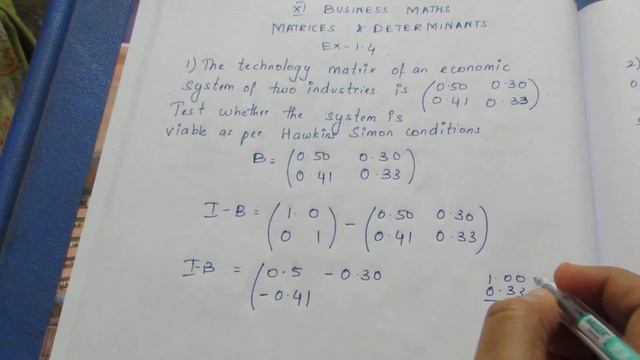 XI BUSINESS MATHS
MATRICES & DETERMINANTS
Ex-1.4
1) The technology matrix of an economic
system of two industries is (0.50 0.30
0.41 0.33).
Test whether the system is
viable as per Hawkins Simon conditions
B = (0.50 0.30
0.41 0.33)
I-B = (1 0
0 1) - (0.50 0.30
0.41 0.33)
I-B = (0.5 -0.30
-0.41
1.00
0.33
2)